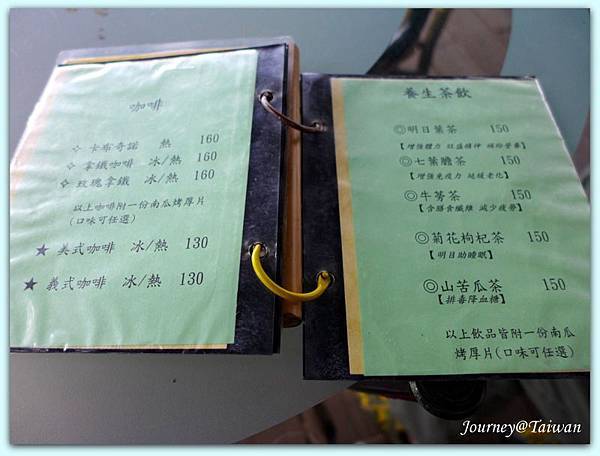 咖啡
✧ 卡布奇諾 熱 160
✧ 拿鐵咖啡 冰/熱 160
✧ 玫瑰拿鐵 冰/熱 160
以上咖啡附一份南瓜烤厚片
(口味可任選)
★ 美式咖啡 冰/熱 130
★ 義式咖啡 冰/熱 130
養生茶飲
◎明日葉茶 150
【增強體力 旺盛精神 補給營養】
◎七葉膽茶 150
【增強免疫力 延緩老化】
◎牛蒡茶 150
【含膳食纖維 減少疲勞】
◎菊花枸杞茶 150
【明目助睡眠】
◎山苦瓜茶 150
【排毒降血糖】
以上飲品皆附一份南瓜
烤厚片(口味可任選)
Journey@Taiwan